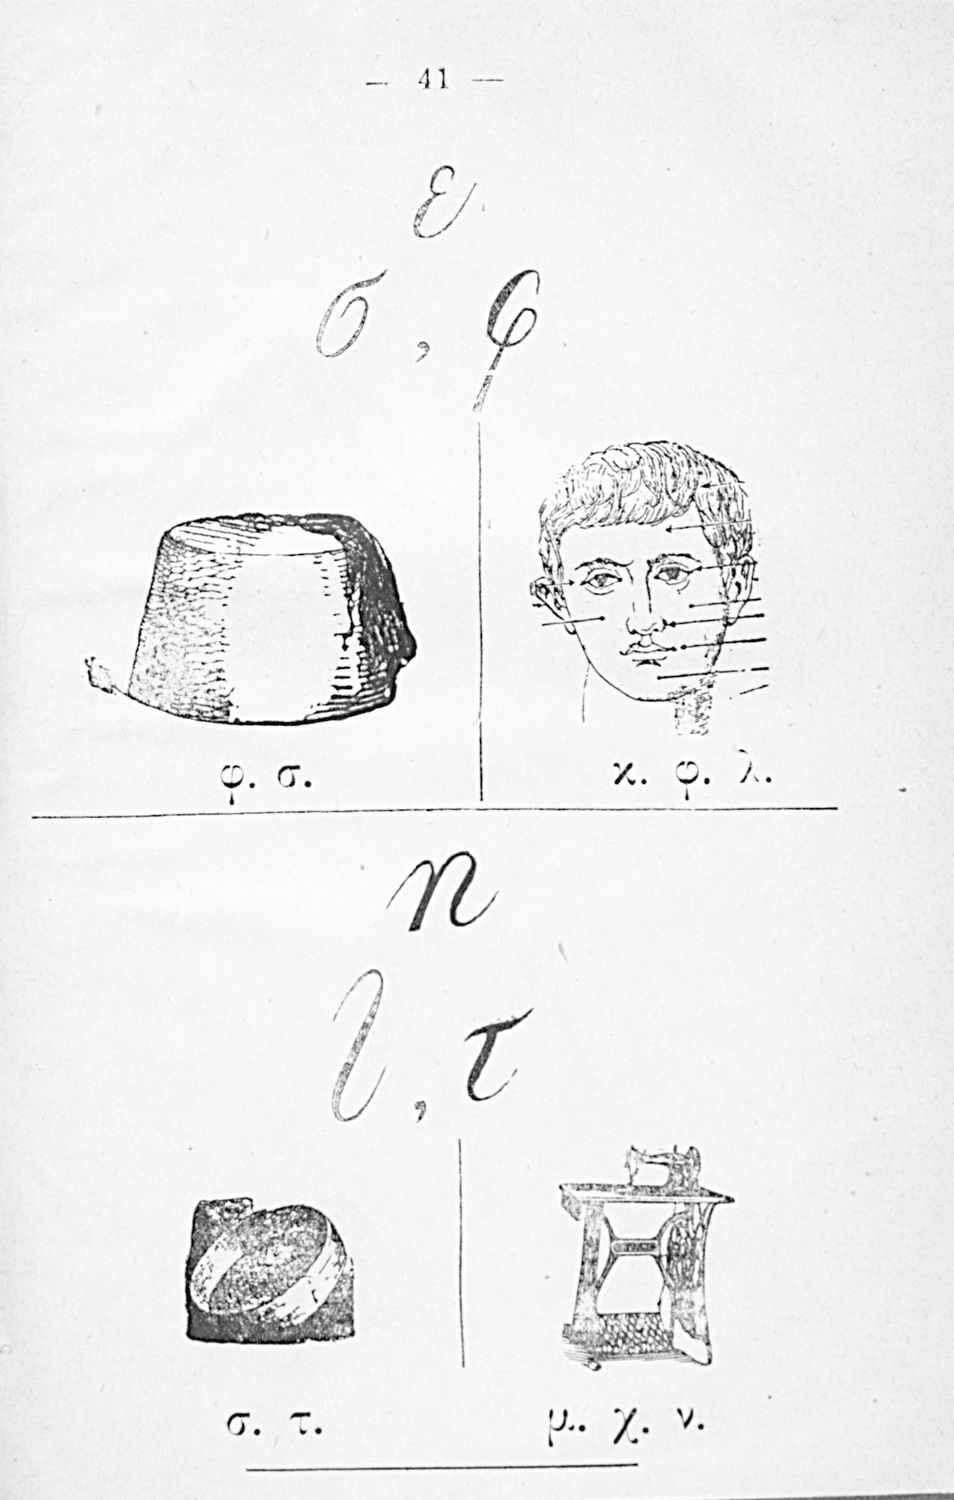 — 41 —
ε
σ, φ
φ. σ.
κ. φ. λ.
η
l, τ
σ. τ.
μ. χ. ν.